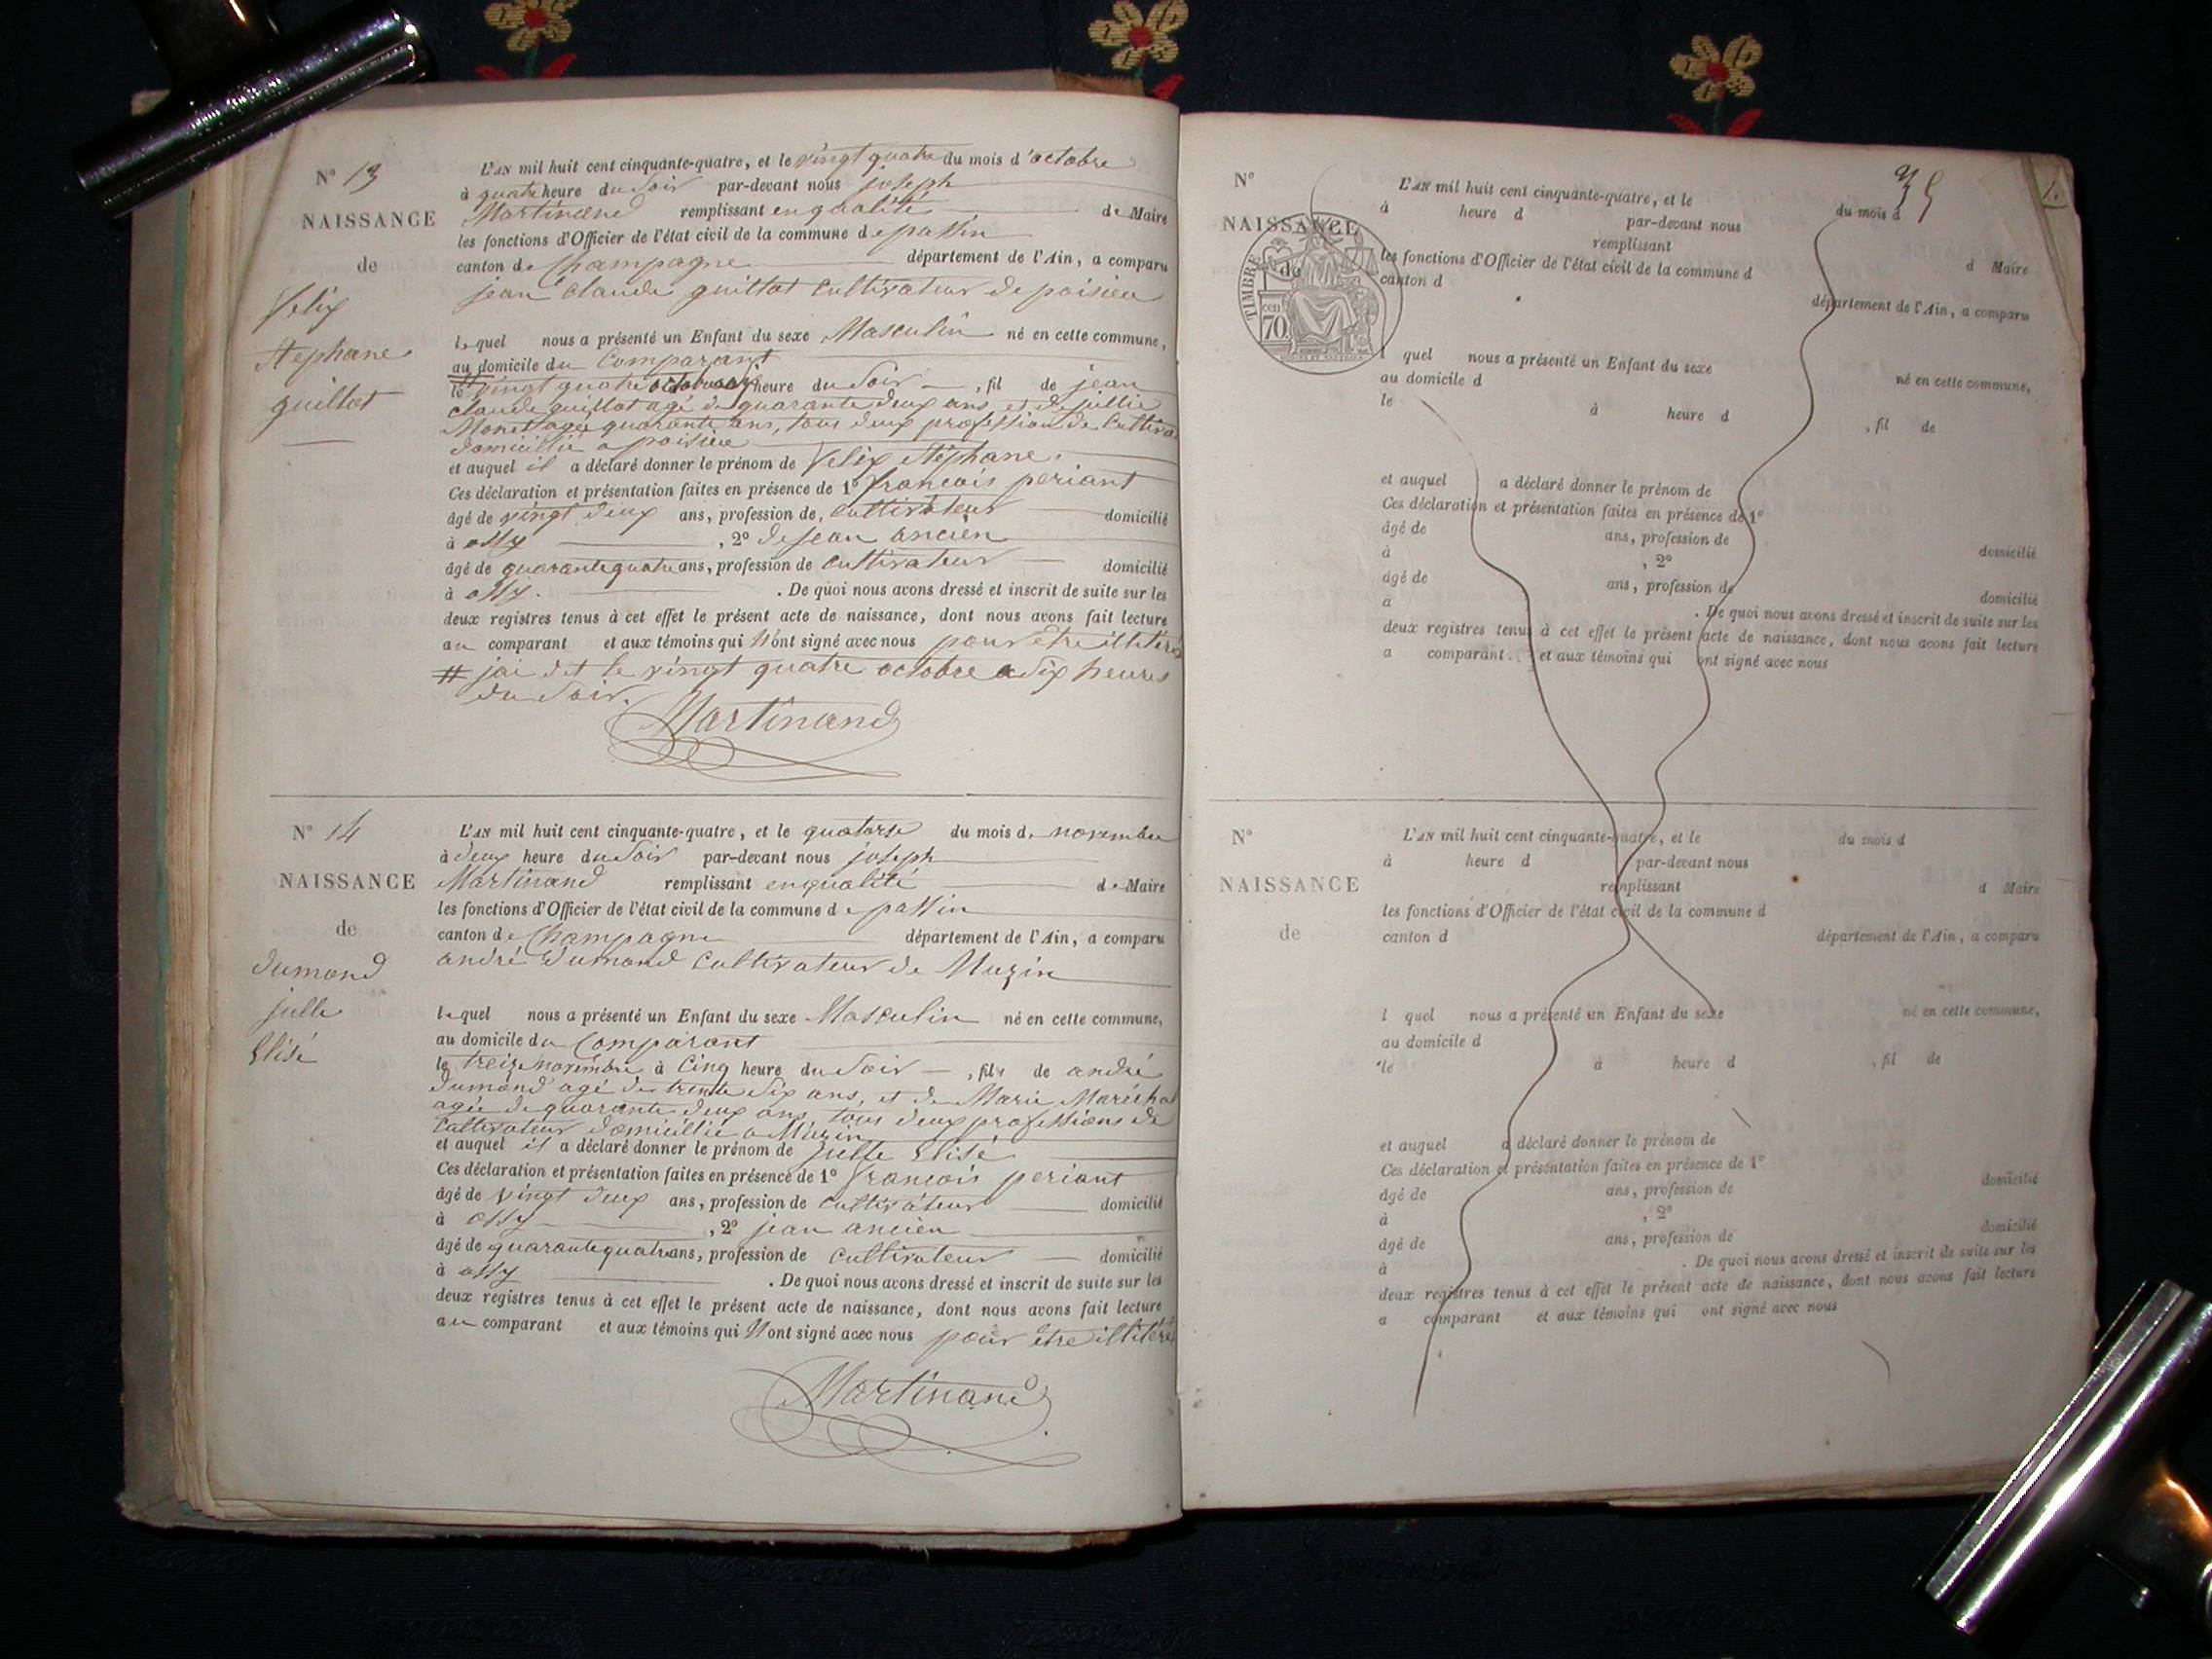 N° 13
NAISSANCE
de
Felix
Stephane
guillot
L'AN mil huit cent cinquante-quatre, et le vingt quatre du mois d'octobre
à quatre heure du Soir par-devant nous joseph
Martinand remplissant en qualité de Maire
les fonctions d'Officier de l'état civil de la commune de passin
canton de Champagne département de l'Ain, a comparu
jean Claude guillot Cultivateur de poisieu
lequel nous a présenté un Enfant du sexe Masculin né en cette commune,
au domicile du Comparant
le vingt quatre octobre heure du Soir , fil de jean
claude guillot agé de quarante deux ans et de jullie
Monet agée quarante ans, tous deux profession de Cultiva
domicillié a poisieu
et auquel il a déclaré donner le prénom de Felix Stephane.
Ces déclaration et présentation faites en présence de 1° francois periant
âgé de vingt deux ans, profession de, cultivateur domicilié
à ossy , 2° de jean ancien
âgé de quarante quatre ans, profession de cultivateur domicilié
à ossy. . De quoi nous avons dressé et inscrit de suite sur les
deux registres tenus à cet effet le présent acte de naissance, dont nous avons fait lecture
au comparant et aux témoins qui N'ont signé avec nous pour être illitéré
# jai dit le vingt quatre octobre a Six heures
du Soir.
Martinand
N° 14
NAISSANCE
de
dumond
julle
Elisé
L'AN mil huit cent cinquante-quatre, et le quatorse du mois de novembre
à deux heure du Soir par-devant nous joseph
Martinand remplissant en qualité de Maire
les fonctions d'Officier de l'état civil de la commune de passin
canton de Champagne département de l'Ain, a comparu
andré dumond Cultivateur de Muzin
lequel nous a présenté un Enfant du sexe Masculin né en cette commune,
au domicile du Comparant
le treize novembre à Cinq heure du Soir , fils de andré
dumond agé de trente Six ans, et de Marie Maréchal
agée de quarante deux ans, tous deux professions de
Cultivateur domicillié a Muzin
et auquel il a déclaré donner le prénom de julle Elisé
Ces déclaration et présentation faites en présence de 1° francois periant
âgé de vingt deux ans, profession de cultivateur domicilié
à ossy , 2° jean ancien
âgé de quarante quatre ans, profession de cultivateur domicilié
à ossy . De quoi nous avons dressé et inscrit de suite sur les
deux registres tenus à cet effet le présent acte de naissance, dont nous avons fait lecture
au comparant et aux témoins qui N'ont signé avec nous pour être illitéré
Martinand
N°
NAISSANCE
de
TIMBRE
cen
70
L'AN mil huit cent cinquante-quatre, et le du mois d
à heure d par-devant nous
remplissant d Maire
les fonctions d'Officier de l'état civil de la commune d
canton d département de l'Ain, a comparu
l quel nous a présenté un Enfant du sexe né en cette commune,
au domicile d
le à heure d , fil de
et auquel a déclaré donner le prénom de
Ces déclaration et présentation faites en présence de 1°
âgé de ans, profession de domicilié
à , 2°
âgé de ans, profession de domicilié
a . De quoi nous avons dressé et inscrit de suite sur les
deux registres tenus à cet effet le présent acte de naissance, dont nous avons fait lecture
a comparant et aux témoins qui ont signé avec nous
N°
NAISSANCE
de
L'AN mil huit cent cinquante-quatre, et le du mois d
à heure d par-devant nous
remplissant d Maire
les fonctions d'Officier de l'état civil de la commune d
canton d département de l'Ain, a comparu
l quel nous a présenté un Enfant du sexe né en cette commune,
au domicile d
le à heure d , fil de
et auquel a déclaré donner le prénom de
Ces déclaration et présentation faites en présence de 1°
âgé de ans, profession de domicilié
à , 2°
âgé de ans, profession de domicilié
à . De quoi nous avons dressé et inscrit de suite sur les
deux registres tenus à cet effet le présent acte de naissance, dont nous avons fait lecture
a comparant et aux témoins qui ont signé avec nous